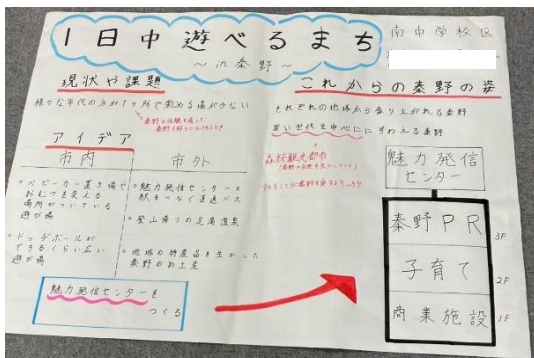 1日中遊べるまち
～in秦野～
南中学校区
現状や課題
様々な年代の方が1ヶ所で楽しめる場が少ない
アイデア
市内
市外
・ベビーカー置き場や
おむつを変える
場所がついている
遊び場
・ドッチボールが
できるくらい広い
遊び場
・魅力発信センターと
駅をつなぐ直通バス
・登山帰りの足湯温泉
・地域の特産品を生かした
秦野のお土産
魅力発信センターを
つくる
これからの秦野の姿
それぞれの地域から盛り上がれる秦野
若い世代を中心ににぎわえる秦野
森林観光都市
魅力発信
センター
秦野PR
3F
子育て
2F
商業施設
1F